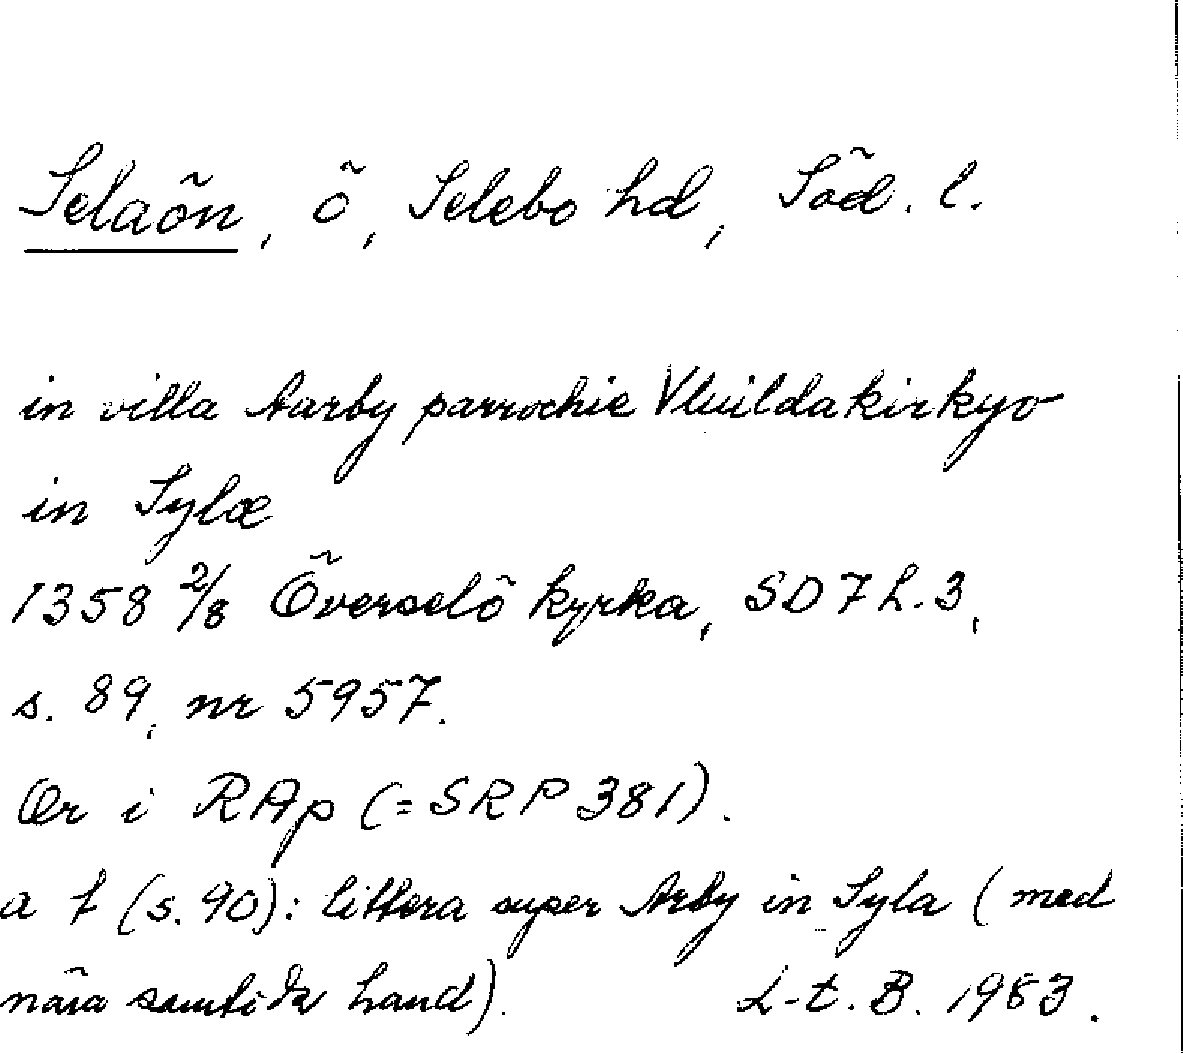 Selaön, ö, Selebo hd, Söd. l.
in villa Aarby parrochie Vluildakirkyo
in Sylæ
1358 2/8 Överselö kyrka, SD 7 h. 3,
s. 89, nr 5957.
Or i RAp (= SRP 381).
a t (s. 90): littera super Arby in Syla (med
nära samtida hand). L-t. B. 1983.